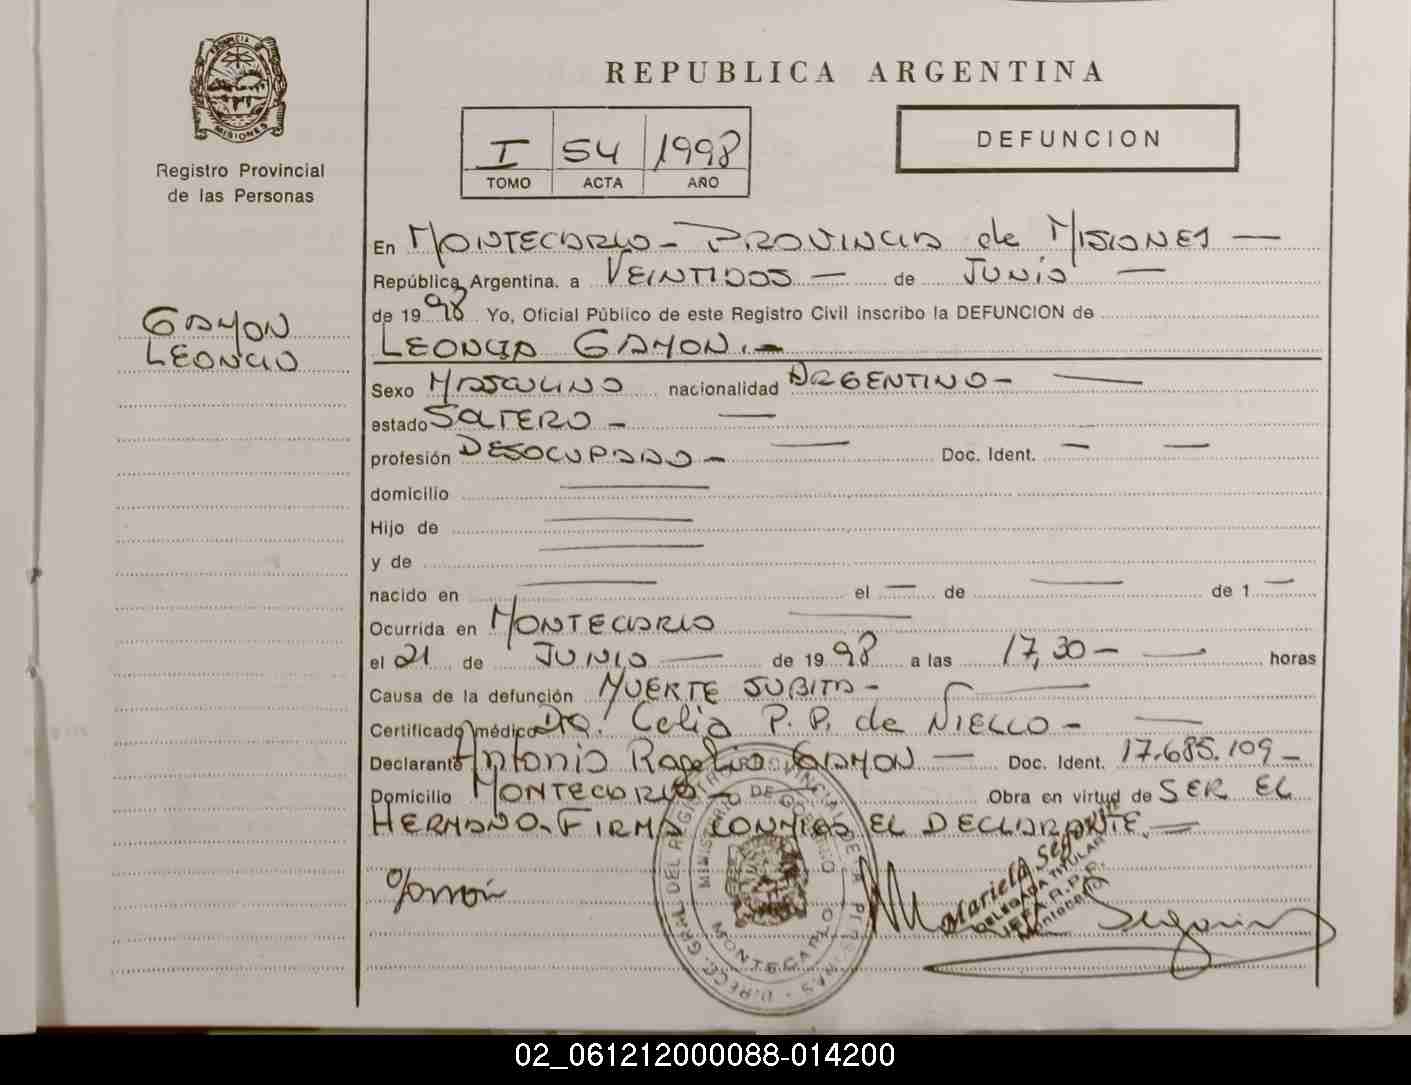 PROVINCIA DE
MISIONES
Registro Provincial
de las Personas
GAMON
LEONCIO
REPUBLICA ARGENTINA
I 54 1998
TOMO ACTA AÑO
DEFUNCION
En MONTECARLO - PROVINCIA de MISIONES —
República Argentina. a VEINTIDOS — de JUNIO —
de 1998 Yo, Oficial Público de este Registro Civil inscribo la DEFUNCION de
LEONCIO GAMON.-
Sexo MASCULINO nacionalidad ARGENTINO - —
estado SOLTERO - —
profesión DESOCUPADO - — Doc. Ident. — —
domicilio —
Hijo de —
y de —
nacido en — el — de — de 1 —
Ocurrida en MONTECARLO —
el 21 de JUNIO — de 1998 a las 17,30 - — horas
Causa de la defunción MUERTE SUBITA - —
Certificado médico DRA. Celia P. P. de NIELLO - —
Declarante Antonio Rogelio GAMON — Doc. Ident. 17.685.109 -
Domicilio MONTECARLO - Obra en virtud de SER EL
HERMANO. FIRMA CONMIGO EL DECLARANTE. —
DIRECC. GRAL. DEL REGISTRO PROVINCIAL DE LA PERSONAS
MINISTERIO DE GOBIERNO
MONTECARLO
Mariela Segovia
DELEGADA TITULAR
Montecarlo
02_061212000088-014200